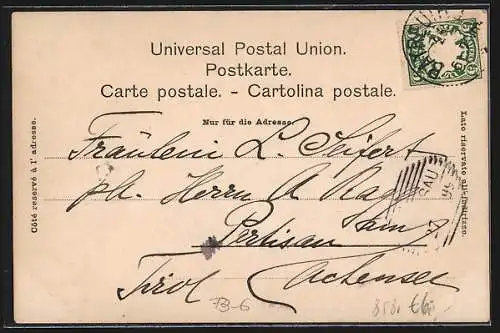 Universal Postal Union.
Postkarte.
Carte postale. - Cartolina postale.
Nur für die Adresse.
Côté reservé à l'adresse.
Lato riservato all'indirizzo.
Fräulein L. Seifert
Herrn A
Pertisau am
Tirol Achensee
73-6